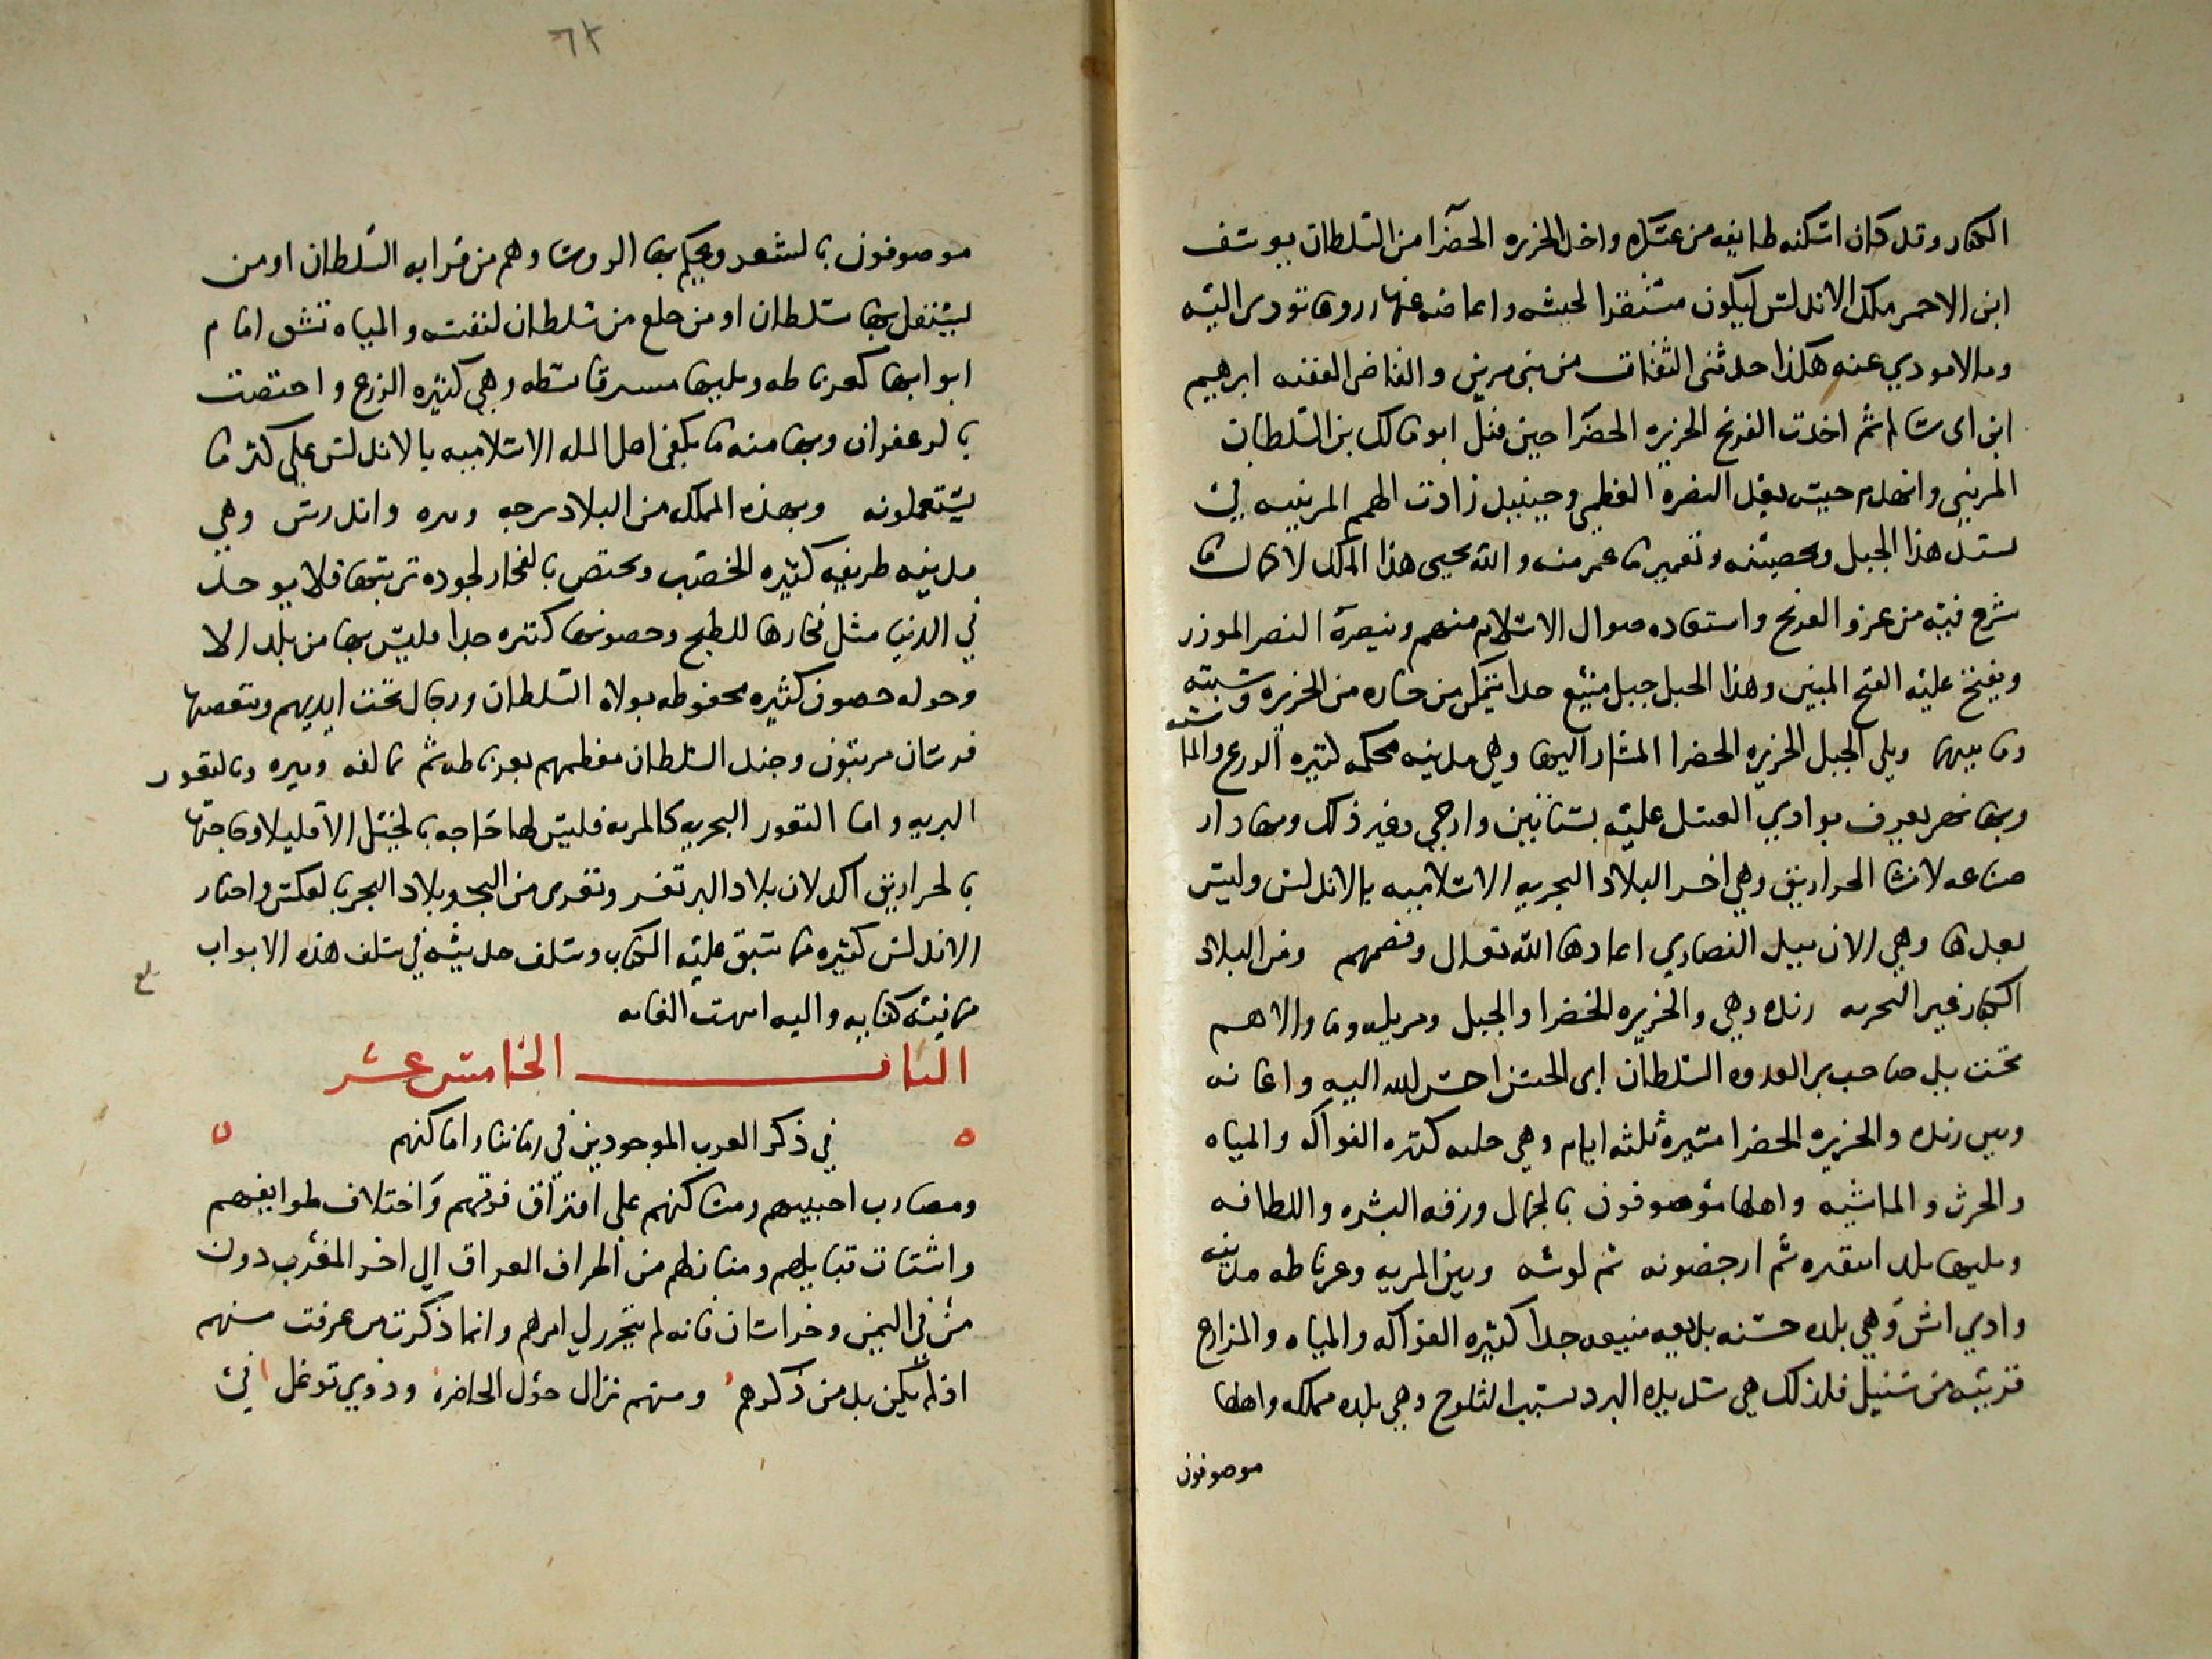 الكفار وقد كان اسكنه طايفه من عسكره واخذ الجزيره الخضرا من السلطان يوسف
ابن الاحمر ملك الاندلس ليكون مستقرا لجيشه واعاضه عنها تودى اليه
ومالا مودي عنه هكذا حدثنى الثقات من بني مرين والقاضى الفقيه ابرهيم
ابن ابى سالم ثم اخذت الفرنج الجزيره الخضرا حين قتل ابو مالك بن السلطان
المرينى وانهدم جيشه بعد النصره العظمى وحينيذ زادت الهمم المرينيه في
هذا الجبل وتحصينه وتعمير ما عمر منه والله يحيى هذا الملك لاكمال ما
شرع فيه من غزو الفرنج واستعاده اموال الاسلام منهم وينصره النصر الموزر
ويفتح عليه الفتح المبين وهذا الجبل جبل منيع جدا يتمكن من حازه من الجزيره وسبته
وما بينها ويلي الجبل الجزيره الخضرا المشار اليها وهي مدينه محكمه كثيره الزرع والماشيه
وبها نهر يعرف بوادي العسل عليه بساتين وارحي وغير ذلك وبها دار
صناعه لانشا الحراريق وهي اخر البلاد البحريه الاسلاميه بالاندلس وليس
بعدها وهي الان بيد النصاري اعادها الله تعالى وقصمهم ومن البلاد
الكبار غير البحريه رنده وهي والجزيره الخضرا والجبل ومربله وما والاهم
تحت يد صاحب بر العدوه السلطان ابى الحسن احسن الله اليه واعانه
وبين رنده والجزيره الخضرا مسيره ثلثه ايام وهي كثيره الفواكه والمياه
والحرث والماشيه واهلها موصوفون بالجمال ورقه البشره واللطافه
ويليها بلد انتقيره ثم ارجضونه ثم لوشه وبين المريه وغرناطه مدينه
وادي اش وهي بلده حسنه بديعه منيعه جدا كثيره الفواكه والمياه والمزارع
قريبه من شنيل فلذلك هي شديده البرد بسبب الثلوج وهي بلده مملكه واهلها
موصوفون
٦٢
موصوفون بالشعر ويحكم بها الروسا وهم من قرابه السلطان او من
يستقل بها سلطان او من خلع من سلطان لنفسه والمياه تشق امام
ابوابها كغرناطه ويليها بسطه وهي كثيره الزرع واختصت
بالزعفران وبها منه ما يكفي اهل المله الاسلاميه بالاندلس على كثره ما
يستعملونه وبهذه المملكه من البلاد برجه وبيره واندرش وهي
مدينه ظريفه كثيره الخصب وتختص بالفخار لجوده تربتها فلا يوجد
في الدنيا مثل فخارها للطبخ وحصونها كثيره جدا فليس بها من بلد الا
وحوله حصون كثيره محفوظه بولاه السلطان ورجال تحت ايديهم وببعضها
فرسان مرتبون وجند السلطان معظمهم بغرناطه ثم بمالقه وبيره وبالثغور
البريه واما الثغور البحريه كالمريه فليس لها حاجه بالخيل الا قليلا وحاجتها
بالحراريق اكد لان بلاد البر تغزى من البحر وبلاد البحر بالعكس واخبار
الاندلس كثيره ما سبق عليه الكتاب وسلف حديثه في سلف هذه الابواب
ما فيه كفايه واليه انتهت الغايه
الباب الخامس عشر
في ذكر العرب الموجودين في زماننا واماكنهم
ومضارب احييتهم ومساكنهم على افتراق فرقهم واختلاف طوايفهم
واشتات قبايلهم ومناظهم من اطراف العراق الى اخر المغرب دون
من في اليمن وخراسان فانه لم يتحرر لي امرهم وانما ذكرت من عرفت منهم
اذ لم يكن بد من ذكرهم ومنهم نزال حول الحاضره وذوي توغل في